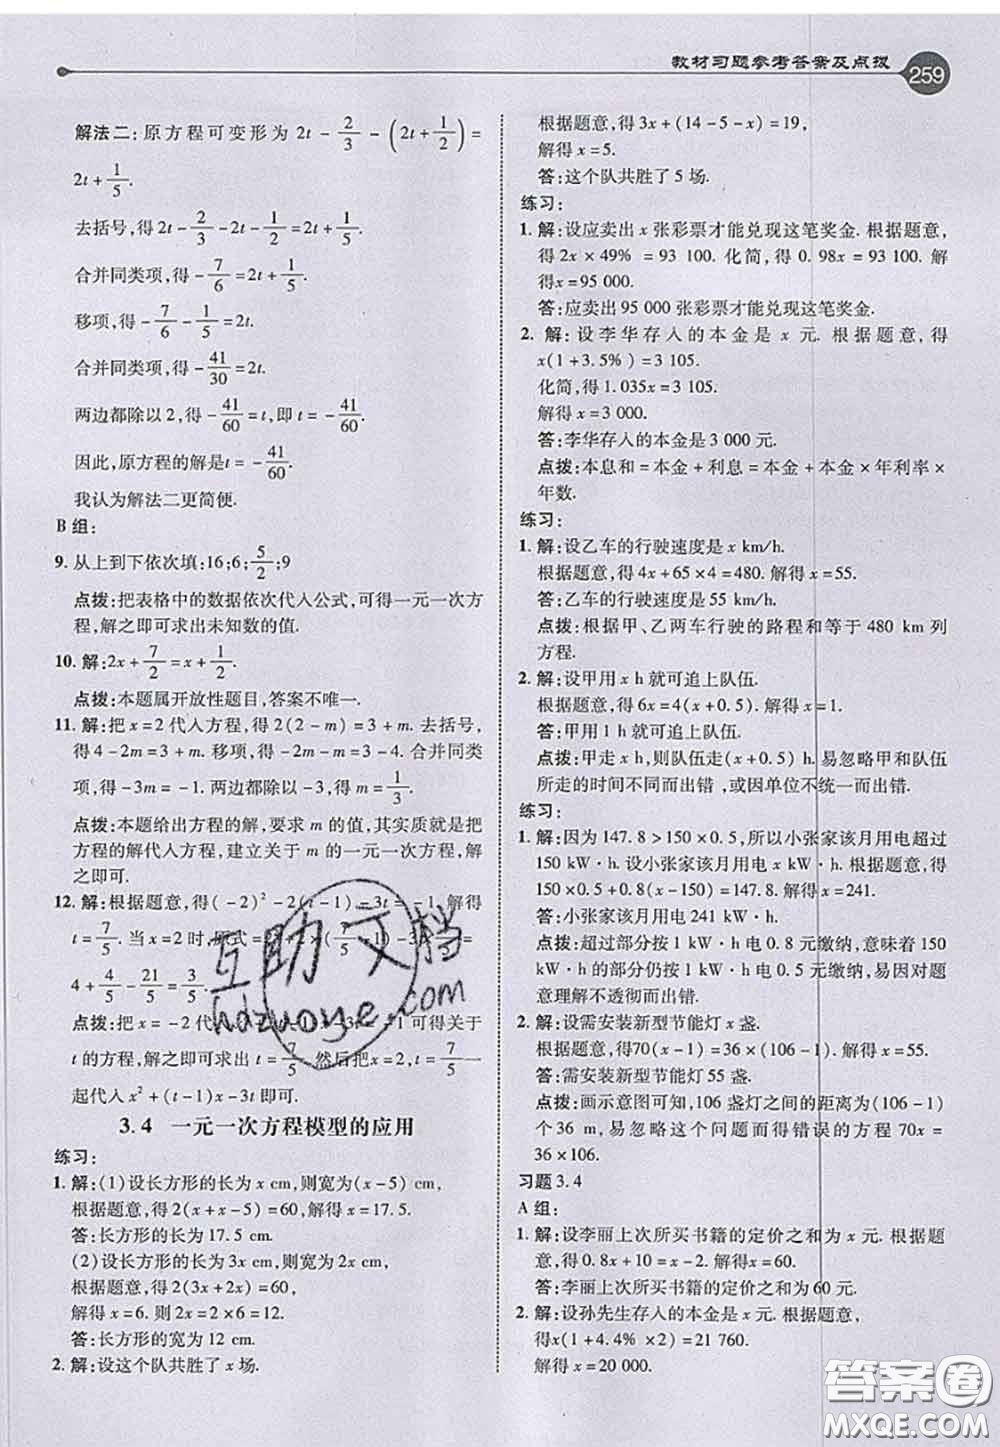 教材习题参考答案及点拨 259
解法二:原方程可变形为 2t - 2/3 - (2t + 1/2) =
2t + 1/5.
去括号,得 2t - 2/3 - 2t - 1/2 = 2t + 1/5.
合并同类项,得 - 7/6 = 2t + 1/5.
移项,得 - 7/6 - 1/5 = 2t.
合并同类项,得 - 41/30 = 2t.
两边都除以 2,得 - 41/60 = t,即 t = - 41/60.
因此,原方程的解是 t = - 41/60.
我认为解法二更简便.
B 组:
9. 从上到下依次填:16;6;5/2;9
点拨:把表格中的数据依次代入公式,可得一元一次方
程,解之即可求出未知数的值.
10. 解:2x + 7/2 = x + 1/2.
点拨:本题属开放性题目,答案不唯一.
11. 解:把 x = 2 代入方程,得 2(2 - m) = 3 + m. 去括号,
得 4 - 2m = 3 + m. 移项,得 - 2m - m = 3 - 4. 合并同类
项,得 - 3m = - 1. 两边都除以 - 3,得 m = 1/3.
点拨:本题给出方程的解,要求 m 的值,其实质就是把
方程的解代入方程,建立关于 m 的一元一次方程,解
之即可.
12. 解:根据题意,得( - 2)² - 2(t - 1) - 3t = - 1. 解得
t = 7/5. 当 x = 2 时,原式 = 2² + 2(7/5 - 1) - 3 × 7/5 =
4 + 4/5 - 21/5 = 3/5.
点拨:把 x = - 2 代入 = - 1 可得关于
t 的方程,解之即可求出 t = 7/5. 然后把 x = 2, t = 7/5 一
起代入 x² + (t - 1)x - 3t 即可.
3.4 一元一次方程模型的应用
练习:
1. 解:(1)设长方形的长为 x cm,则宽为(x - 5) cm,
根据题意,得 2(x + x - 5) = 60,解得 x = 17.5.
答:长方形的长为 17.5 cm.
(2)设长方形的长为 3x cm,则宽为 2x cm,
根据题意,得 2(3x + 2x) = 60,
解得 x = 6. 2x = 2 × 6 = 12.
答:长方形的宽为 12 cm.
2. 解:设这个队共胜了 x 场.
根据题意,得 3x + (14 - 5 - x) = 19,
解得 x = 5.
答:这个队共胜了 5 场.
练习:
1. 解:设应卖出 x 张彩票才能兑现这笔奖金. 根据题意,
得 2x × 49% = 93 100. 化简,得 0.98x = 93 100. 解
得 x = 95 000.
答:应卖出 95 000 张彩票才能兑现这笔奖金.
2. 解:设李华存入的本金是 x 元. 根据题意,得
x(1 + 3.5%) = 3 105.
化简,得 1.035x = 3 105.
解得 x = 3 000.
答:李华存入的本金是 3 000 元.
点拨:本息和 = 本金 + 利息 = 本金 + 本金 × 年利率 ×
年数.
练习:
1. 解:设乙车的行驶速度是 x km/h.
根据题意,得 4x + 65 × 4 = 480. 解得 x = 55.
答:乙车的行驶速度是 55 km/h.
点拨:根据甲、乙两车行驶的路程和等于 480 km 列
方程.
2. 解:设甲用 x h 就可追上队伍.
根据题意,得 6x = 4(x + 0.5). 解得 x = 1.
答:甲用 1 h 就可追上队伍.
点拨:甲走 x h,则队伍走(x + 0.5) h. 易忽略甲和队伍
所走的时间不同而出错,或因单位不统一而出错.
练习:
1. 解:因为 147.8 > 150 × 0.5,所以小张家该月用电超过
150 kW·h. 设小张家该月用电 x kW·h. 根据题意,得
150 × 0.5 + 0.8(x - 150) = 147.8. 解得 x = 241.
答:小张家该月用电 241 kW·h.
点拨:超过部分按 1 kW·h 电 0.8 元缴纳,意味着 150
kW·h 的部分仍按 1 kW·h 电 0.5 元缴纳,易因对题
意理解不透彻而出错.
2. 解:设需安装新型节能灯 x 盏.
根据题意,得70(x - 1) = 36 × (106 - 1). 解得 x = 55.
答:需安装新型节能灯 55 盏.
点拨:画示意图可知,106 盏灯之间的距离为(106 - 1)
× 36 m,易忽略这个问题而得错误的方程 70x =
36 × 106.
习题 3.4
A 组:
1. 解:设李丽上次所买书籍的定价之和为 x 元. 根据题
意,得 0.8x + 10 = x - 2. 解得 x = 60.
答:李丽上次所买书籍的定价之和为 60 元.
2. 解:设孙先生存入的本金是 x 元. 根据题意,
得x(1 + 4.4% × 2) = 21 760.
解得 x = 20 000.
互助文档
hdzuoye.com
答案圈
MXQE.COM